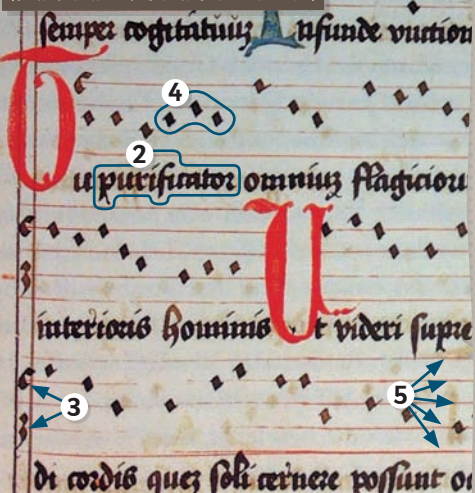 semper cogitatuuz Infunde unction
4
2
Tu purificator omnium flagicioru
interioris hominis Ut videri supre
3
5
di cordis quez soli cernere possunt o